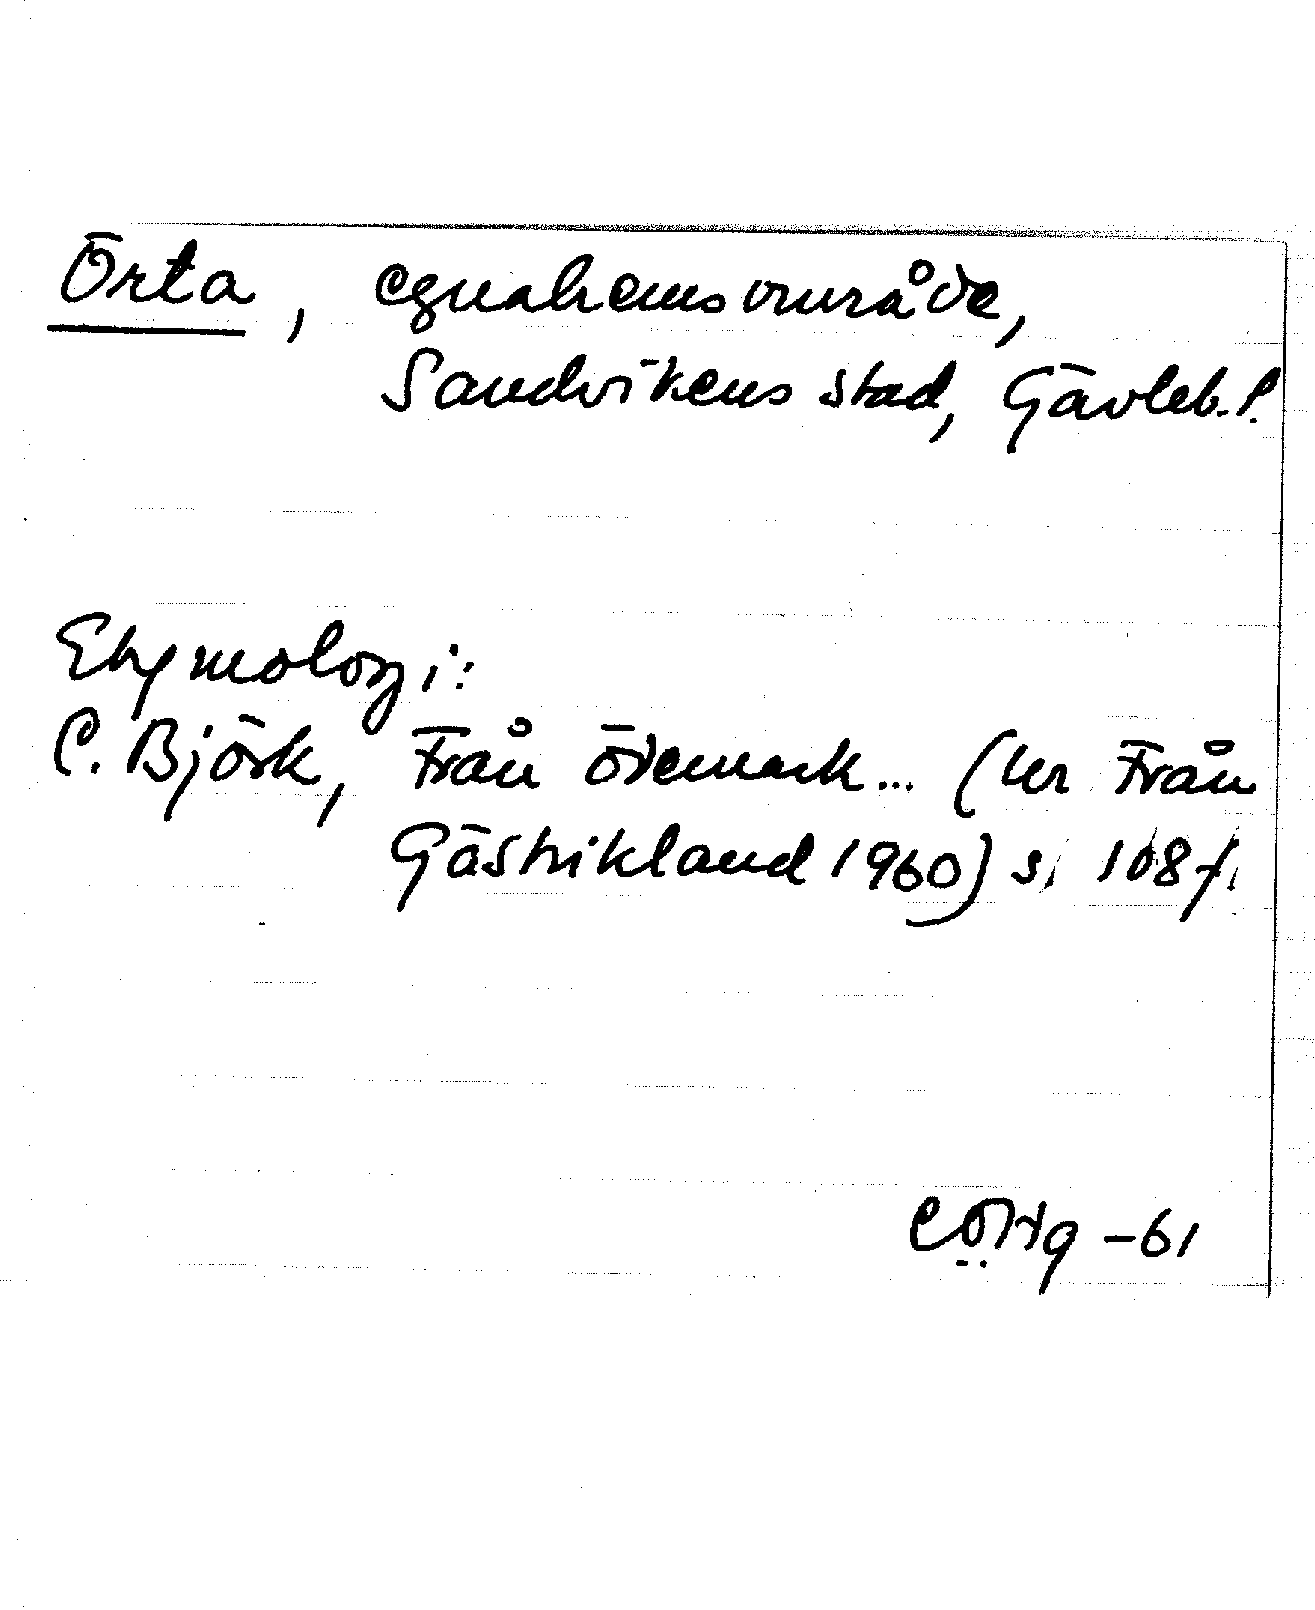 Örta, egnahemsområde,
Sandvikens stad, Gävleb. l.
Etymologi:
C. Björk, Från ödemark... (ur Från
Gästrikland 1960) s. 108 f.
-61